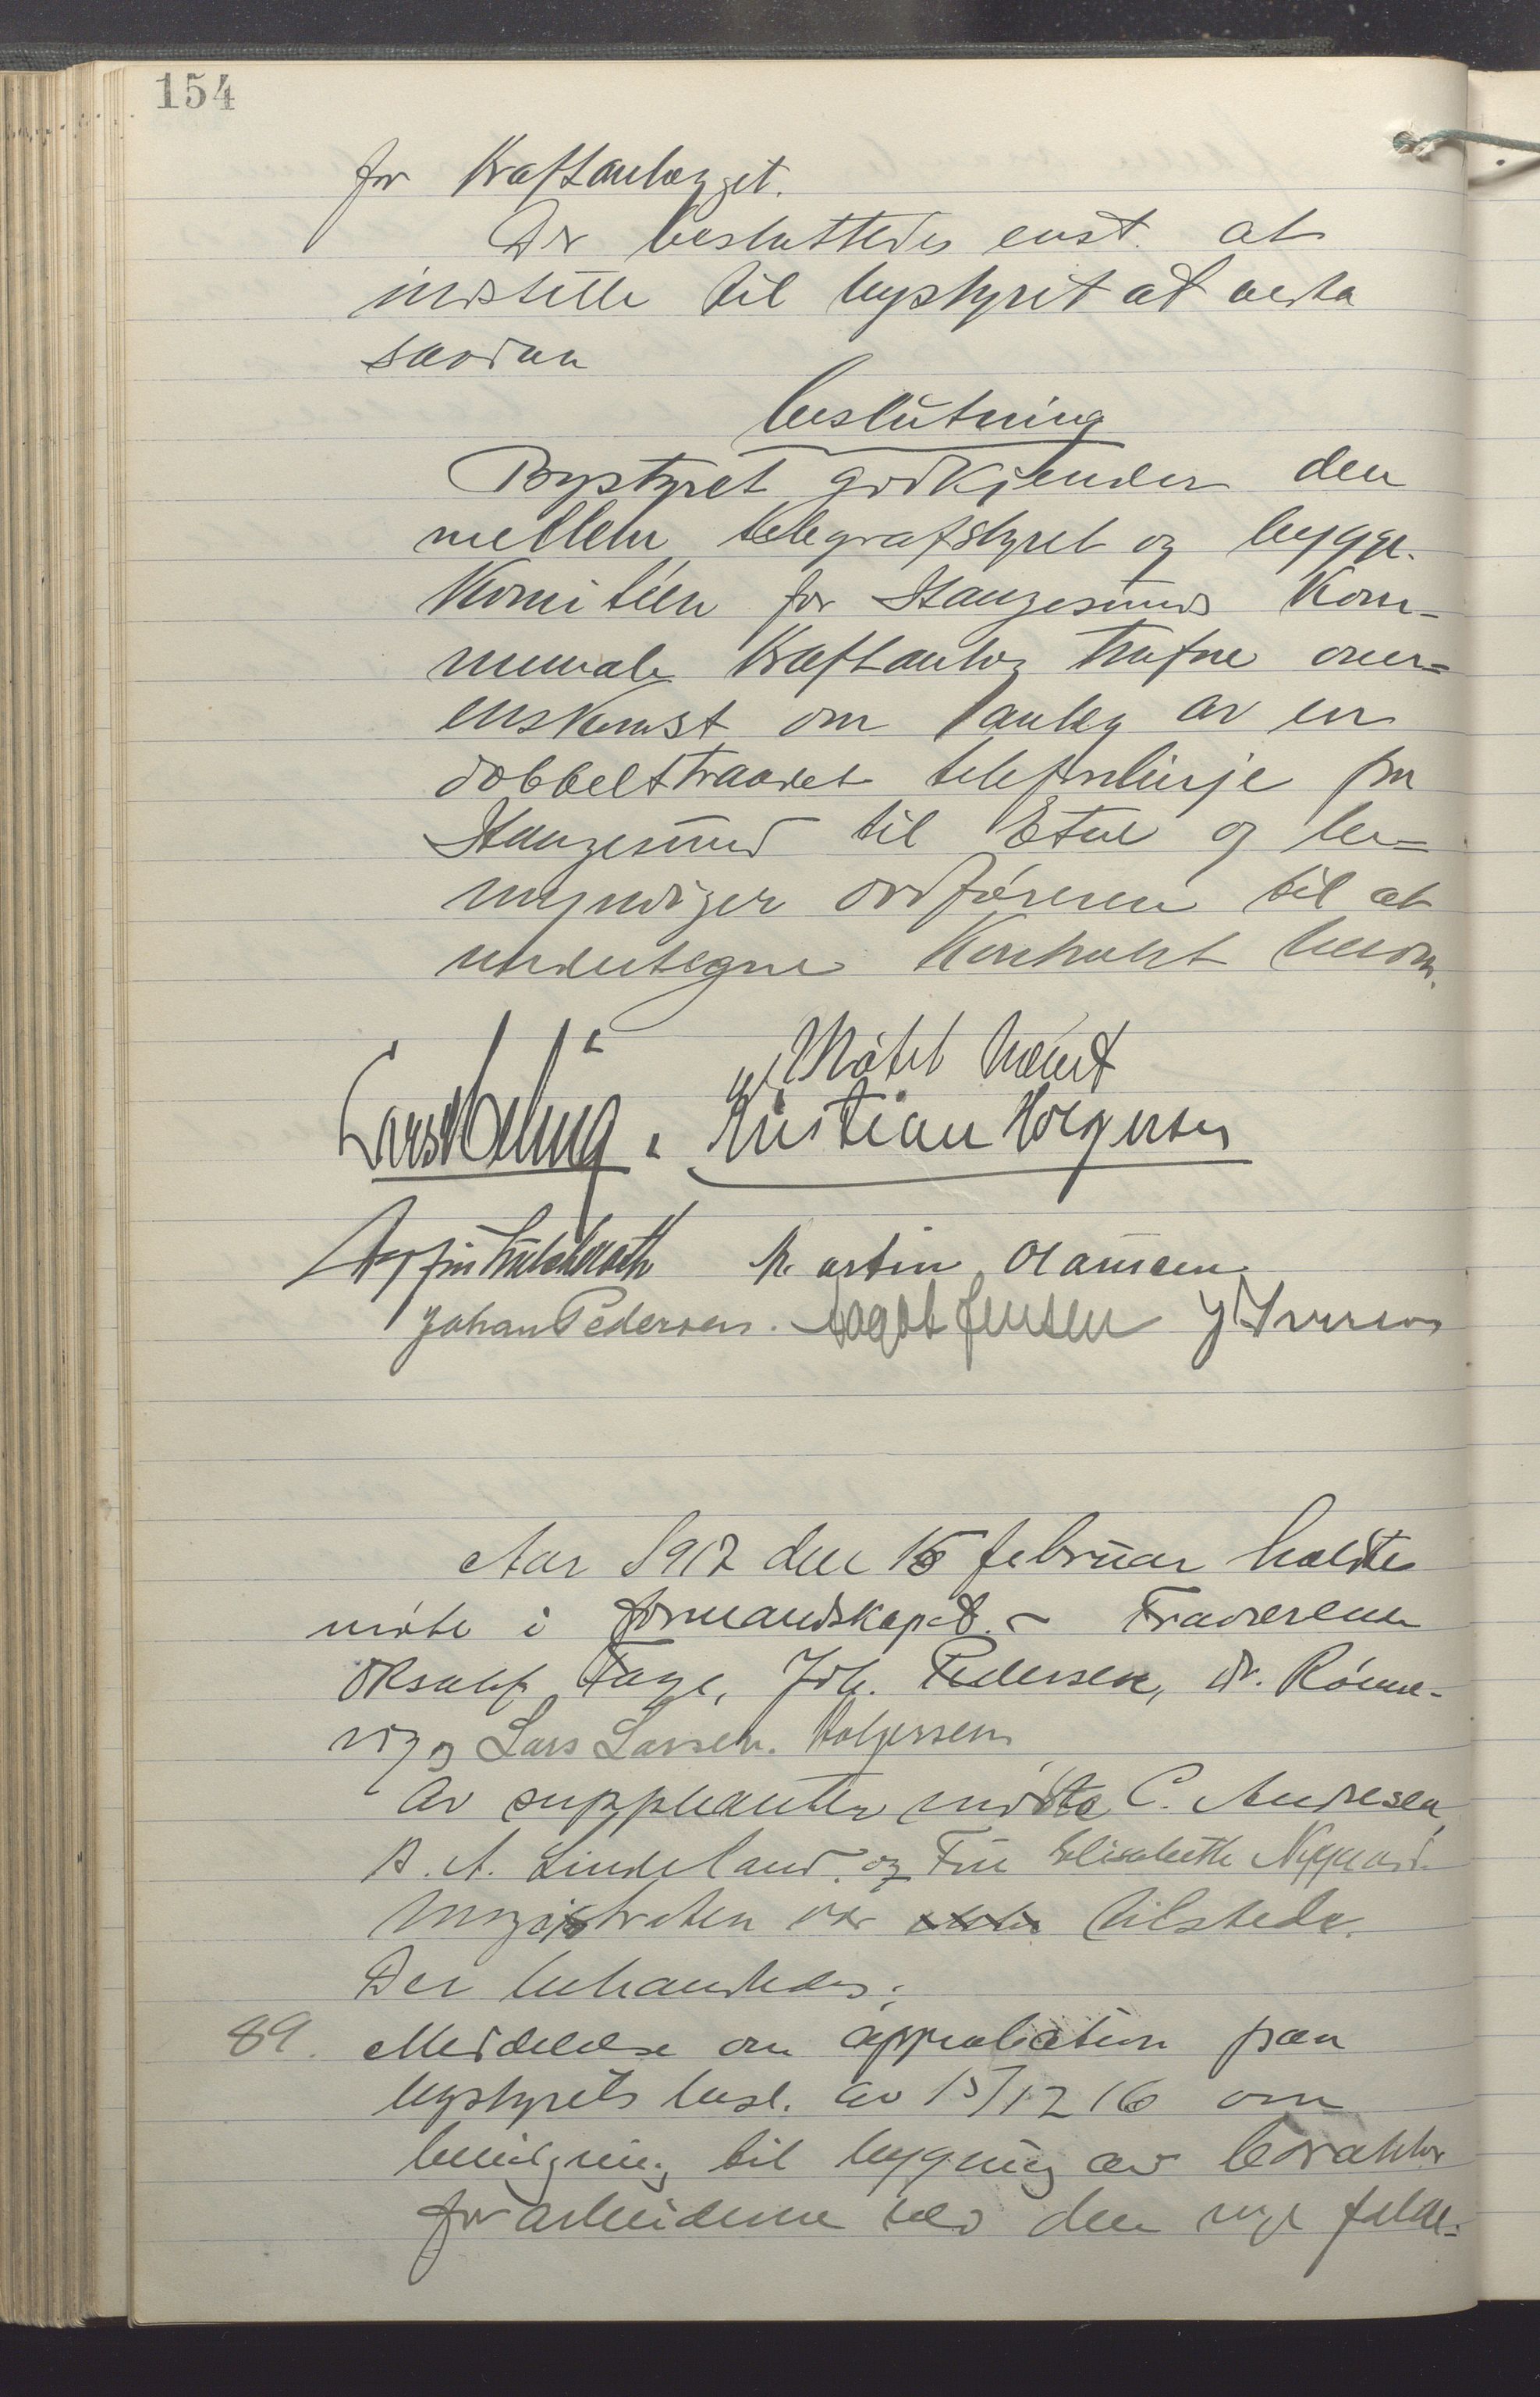 154
for Kraftanlægget.
Der besluttedes enst. at
indstille til bystyret at vedta
saadan
beslutning
Bystyret godkjender den
mellem telegrafstyret og bygge-
komitéen for Haugesunds Kom-
munale Kraftanlæg trufne over=
enskomst om anlæg av en
dobbelttraadet telefonlinje fra
Haugesund til Etne og be=
myndiger ordføreren til at
undertegne Kontrakt herom.
Møtet hævet
Kristian Holgersen
Martin Olaussen
Johan Pedersen. Aagot Jensen J Iversen
Aar 1917 den 15 februar holdtes
møte i formandskapet. - Fraværende
Oksahl Fage, Joh. Pedersen, dr. Rønne-
vig og Lars Larsen. Holgersen
Av suppleanter møtte C. Andresen,
A. Lindeland. og Fru Elisabeth Nygaard.
Magistraten var tilstede.
Der behandledes:
89. Meddelelse om approbation paa
bystyrets besl. av 15/12 16 om
bevilgning til bygning av barakker
for arbeiderne ved den nye